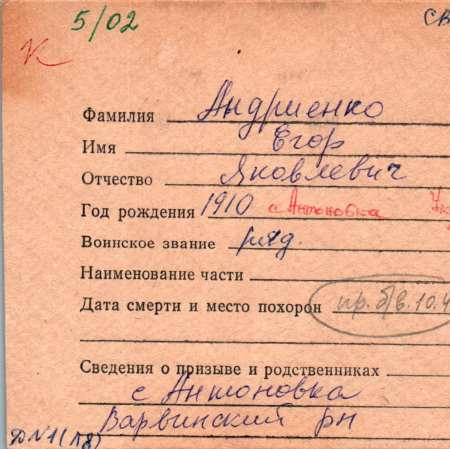 5/02 св
К
Фамилия Андриенко
Имя Егор
Отчество Яковлевич
Год рождения 1910 с Антоновка
Воинское звание ряд.
Наименование части
Дата смерти и место похорон пр. б/в. 10.4
Сведения о призыве и родственниках
с Антоновка
Варвинский рн